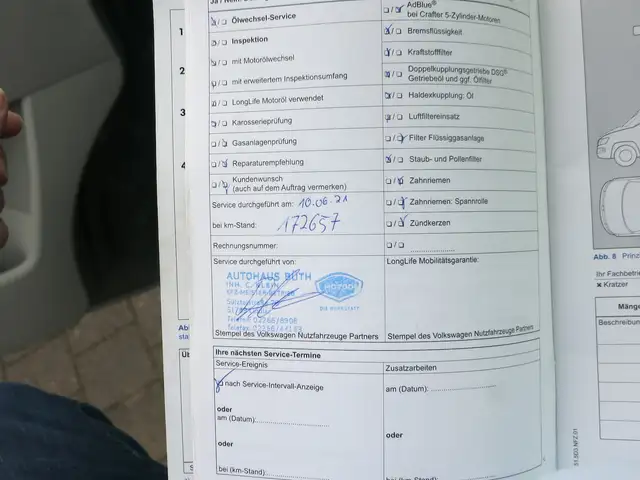 Ölwechsel-Service
Inspektion
mit Motorölwechsel
mit erweitertem Inspektionsumfang
LongLife Motoröl verwendet
Karosserieprüfung
Gasanlagenprüfung
Reparaturempfehlung
Kundenwunsch
(auch auf dem Auftrag vermerken)
Service durchgeführt am: 10.06.21
bei km-Stand: 172657
Rechnungsnummer:
Service durchgeführt von:
AUTOHAUS BÜTH
INH. C. KLEIN
Stempel des Volkswagen Nutzfahrzeuge Partners
AdBlue®
bei Crafter 5-Zylinder-Motoren
Bremsflüssigkeit
Kraftstofffilter
Doppelkupplungsgetriebe DSG®
Getriebeöl und ggf. Ölfilter
Haldexkupplung: Öl
Luftfiltereinsatz
Filter Flüssiggasanlage
Staub- und Pollenfilter
Zahnriemen
Zahnriemen: Spannrolle
Zündkerzen
LongLife Mobilitätsgarantie:
Stempel des Volkswagen Nutzfahrzeuge Partners
Ihre nächsten Service-Termine
Service-Ereignis
nach Service-Intervall-Anzeige
oder
am (Datum):
oder
bei (km-Stand):
Zusatzarbeiten
am (Datum):
oder
bei (km-Stand):
1
2
3
4
51.5D3.NFZ.01
Abb. 8 Prinz
Ihr Fachbetrie
× Kratzer
Mänge
Beschreibu